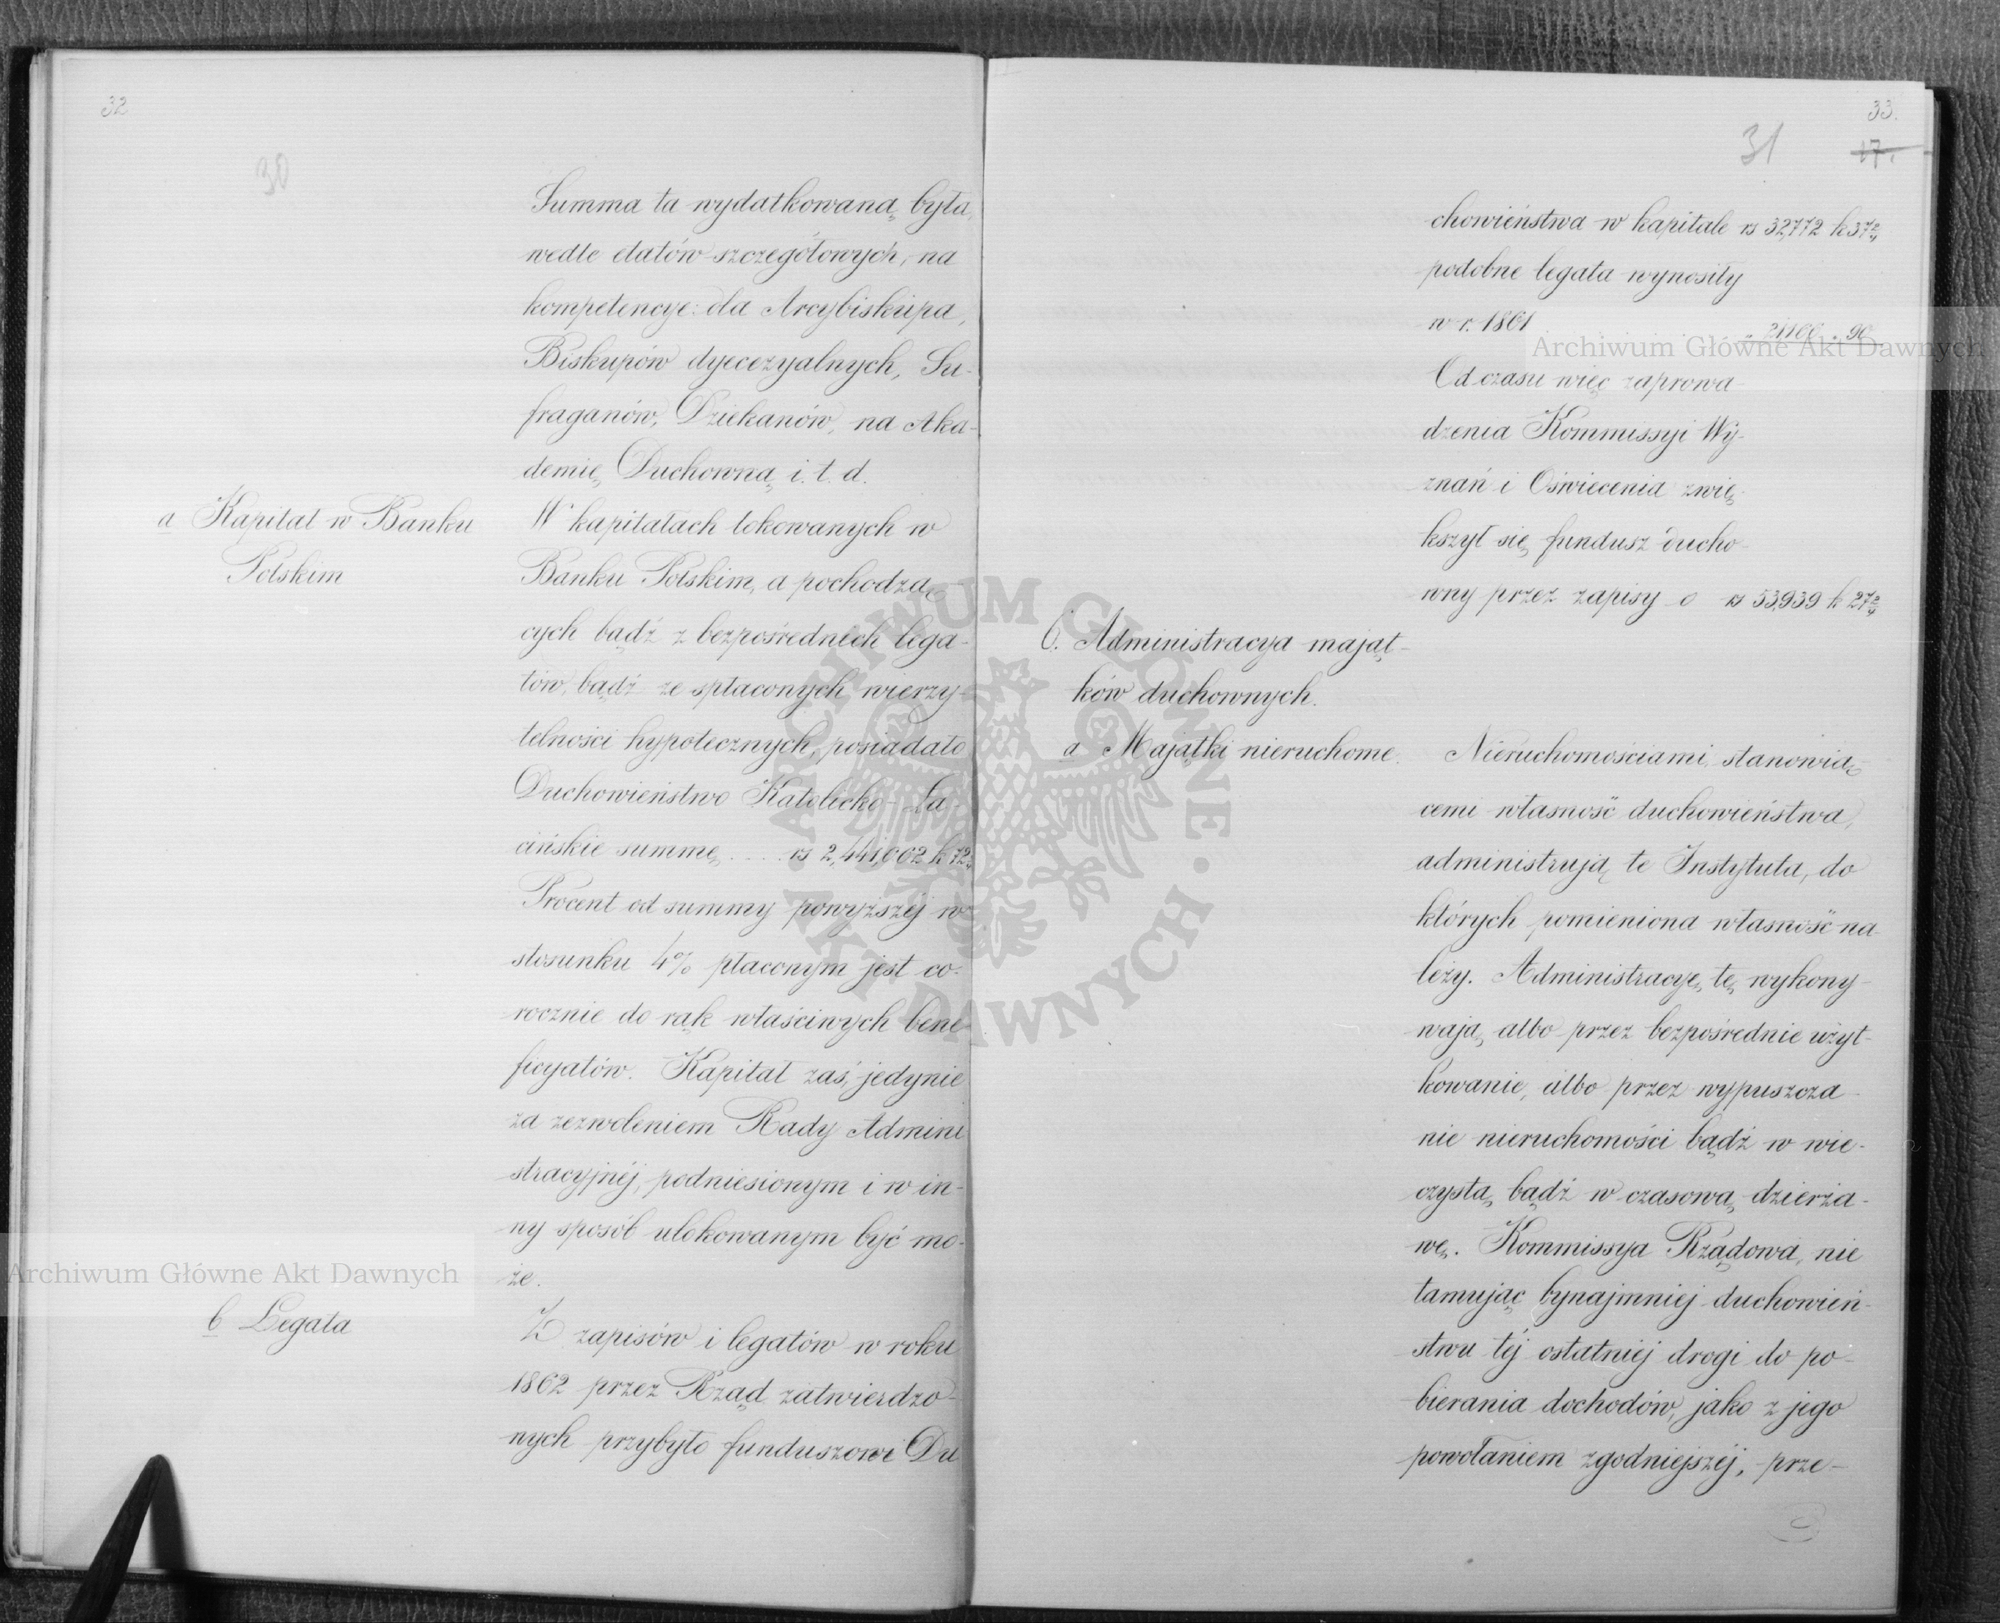 32
30
Summa ta wydatkowaną była,
wedle etatów szczegółowych, na
kompetencye: dla Arcybiskupa,
Biskupów dyecezyalnych, Su-
fraganów, Dziekanów, na Aka-
demię Duchowną i. t. d.
a Kapitał w Banku
Polskim
W kapitałach lokowanych w
Banku Polskim, a pochodzą-
cych bądź z bezpośrednich lega-
tów, bądź ze spłaconych wierzy-
telności hypotecznych, posiadało
Duchowieństwo Katolicko-Ła-
cińskie summę .... rs 2,441,002 k 72
Procent od summy powyższéj w
stosunku 4% płaconym jest co-
rocznie do rąk właściwych bene-
ficyatów. Kapitał zaś, jedynie
za zezwoleniem Rady Admini
stracyjnéj, podniesionym i w in-
ny sposób ulokowanym być mo-
że.
b Legata
Z zapisów i legatów w roku
1862 przez Rząd zatwierdzo-
nych przybyło funduszowi Du
33.
31
17.
chowieństwa w kapitale rs 32,772 k 37
podobne legata wynosiły
w r. 1861 " 90
Od czasu więc zaprowa-
dzenia Kommissyi Wy-
znań i Oświecenia zwię-
kszył się fundusz ducho-
wny przez zapisy o rs 53,939 k 27
6. Administracya mająt-
ków duchownych.
a Majątki nieruchome.
Nieruchomościami, stanowią-
cemi własność duchowieństwa,
administrują te Instytuta, do
których pomieniona własność na-
leży. Administracyę tę wykony-
wają albo przez bezpośrednie użyt-
kowanie, albo przez wypuszcza-
nie nieruchomości bądź w wie-
czystą bądź w czasową dzierża-
wę. Kommissya Rządowa, nie
tamując bynajmniej duchowień-
stwu téj ostatniéj drogi do po-
bierania dochodów, jako z jego
powołaniem zgodniejszéj, prze-
Archiwum Główne Akt Dawnych
Archiwum Główne Akt Dawnych
ARCHIWUM GŁÓWNE AKT DAWNYCH